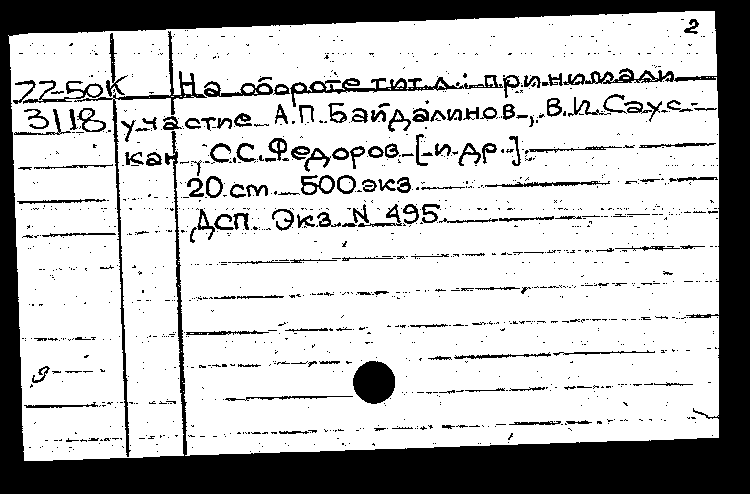 2
72-50К На обороте тит.л.: принимали
3118 участие А.П.Байдалинов, В.И.Саус-
кан, С.С.Федоров [и др.].
20 см. 500 экз.
Дсп. Экз N 495.